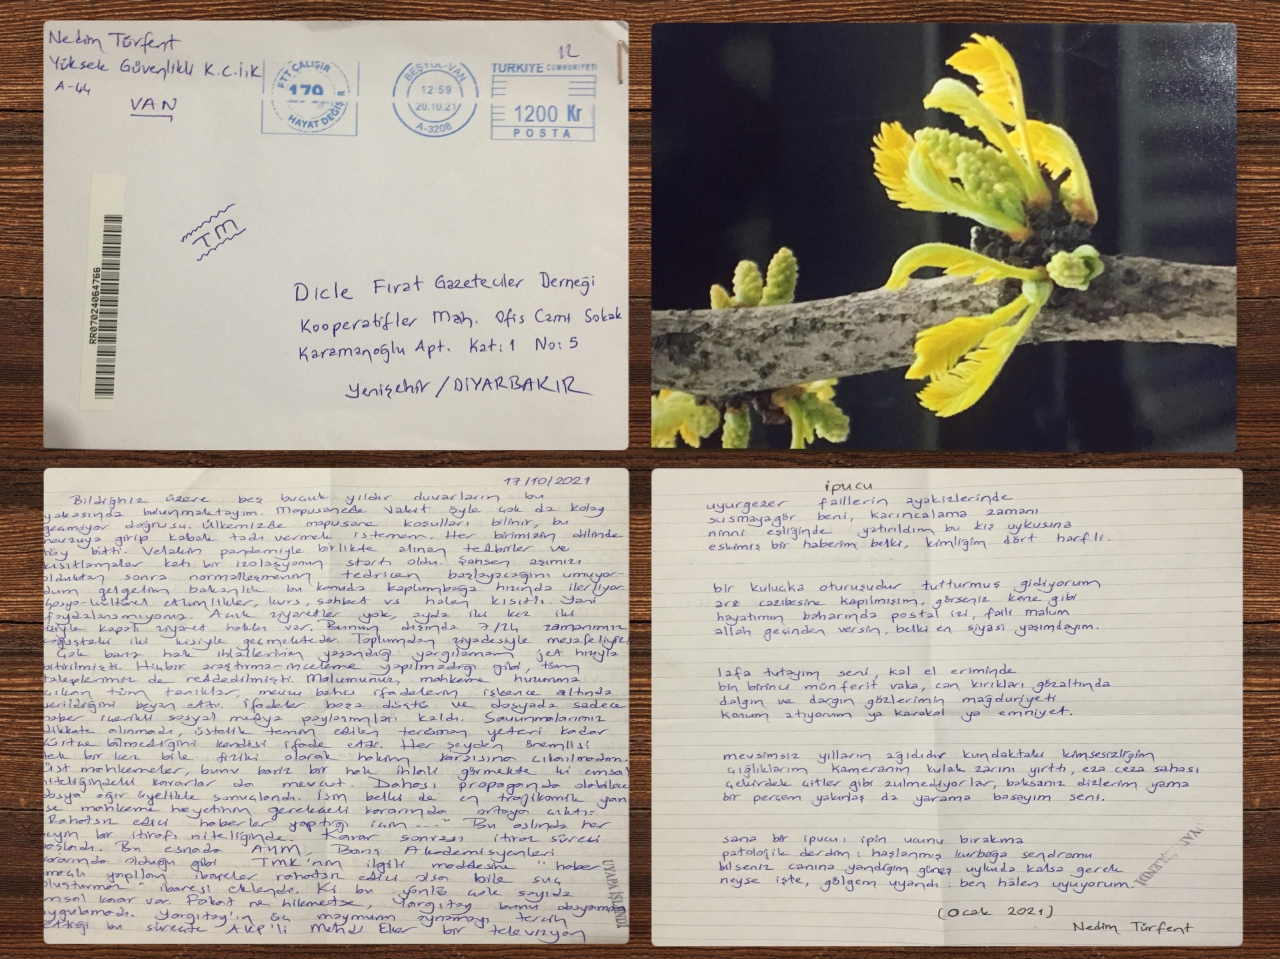 Nedim Türfent
Yüksek Güvenlikli K.C.İ.K
A-44
VAN
12
PTT ÇALIŞIR
179
HAYAT DEĞİŞİR
BEŞYOL-VAN
12:59
20.10.21
A-3208
TÜRKİYE CUMHURİYETİ
1200 Kr
POSTA
RR07024064766
TM
Dicle Fırat Gazeteciler Derneği
Kooperatifler Mah. Ofis Camı Sokak
Karamanoğlu Apt. Kat:1 No:5
Yenişehir / DİYARBAKIR
17/10/2021
Bildiğiniz üzere beş buçuk yıldır duvarların bu
yakasında bulunmaktayım. Mapusanede vakit öyle çok da kolay
geçmiyor doğrusu. Ülkemizde mapusane koşulları bilinir, bu
mevzuya girip kabak tadı vermek istemem. Her birimizin dilinde
tüy bitti. Velakin pandemiyle birlikte alınan tedbirler ve
kısıtlamalar katı bir izolasyonun startı oldu. Şahsen aşımızı
olduktan sonra normalleşmenin tedricen başlayacağını umuyor-
dum gelgelim bakanlık bu konuda kaplumbağa hızında ilerliyor.
Sosyo-kültürel etkinlikler, kurs, sohbet vs halen kısıtlı. Yani
faydalanamıyoruz. Açık ziyaretler yok, ayda iki kez iki
kapalı ziyaret hakkı var. Bunun dışında 7/24 zamanımız
koğuştaki iki kişiyle geçmektedir. Toplumdan ziyadesiyle mesafeliyiz.
Çok bariz hak ihlallerinin yaşandığı yargılamam jet hızıyla
bitirilmişti. Hiçbir araştırma-inceleme yapılmadığı gibi, tüm
taleplerimiz de reddedilmişti. Malumunuz, mahkeme huzuruna
çıkan tüm tanıklar, mevzu bahis ifadelerin işkence altında
verildiğini beyan etti. İfadeler boşa düştü ve dosyada sadece
haber içerikli sosyal medya paylaşımları kaldı. Savunmalarımız
dikkate alınmadı, üstelik temin edilen tercüman yeteri kadar
Kürtçe bilmediğini kendisi ifade etti. Her şeyden önemlisi
tek bir kez bile fiziki olarak hakim karşısına çıkarılmadım.
Üst mahkemeler, bunu bariz bir hak ihlali görmekte ki emsal
niteliğindeki kararlar da mevcut. Dahası propaganda olabilecek
dosya ağır üyelikle sonuçlandı. İşin belki de en trajikomik yanı
ise mahkeme heyetinin gerekçeli kararında ortaya çıktı:
"Rahatsız edici haberler yaptığı için ..." Bu aslında her
açım bir itirafı niteliğinde. Karar sonrası itiraz süreci
başladı. Bu esnada AYM, Barış Akademisyenleri
kararında olduğu gibi TMK'nın ilgili maddesine "haber
amaçlı yapılan ibareler rahatsız edici olsa bile suç
oluşturmaz" ibaresi eklendi. Ki bu yönlü çok sayıda
emsal karar var. Fakat ne hikmetse, Yargıtay bunu dosyamda
uygulamadı. Yargıtay'ın üç maymunu oynamayı tercih
ettiği bu süreçte AKP'li Mehdi Eker bir televizyon
ipucu
uyurgezer faillerin ayakizlerinde
susmayagör beni, karıncalama zamanı
ninni eşliğinde yatırıldım bu kış uykusuna
eskimiş bir haberim belki, kimliğim dört harfli.
bir kuluçka oturuşudur tutturmuş gidiyorum
arz cazibesine kapılmışım, görseniz kene gibi
hayatımın baharında postal izi, faili malum
allah geçinden versin, belki en siyasi yaşımdayım.
lafa tutayım seni, kal el eriminde
bin birinci münferit vaka, can kırıkları gözaltında
dalgın ve dargın gözlerimin mağduriyeti
konum atıyorum ya karakol ya emniyet.
mevsimsiz yılların ağıdıdır kundaktaki kimsesizliğim
çığlıklarım kameranın kulak zarını yırttı, eza ceza sahası
çekirdek çitler gibi zulmediyorlar, baksanız dizlerim yama
bir perçem yakınlaş da yarama basayım seni.
sana bir ipucu, ipin ucunu bırakma
patolojik derdim: haşlanmış kurbağa sendromu
bilseniz canına yandığım güneş uykuda kalsa gerek
neyse işte, gölgem uyandı: ben hâlen uyuyorum.
(Ocak 2021)
Nedim Türfent